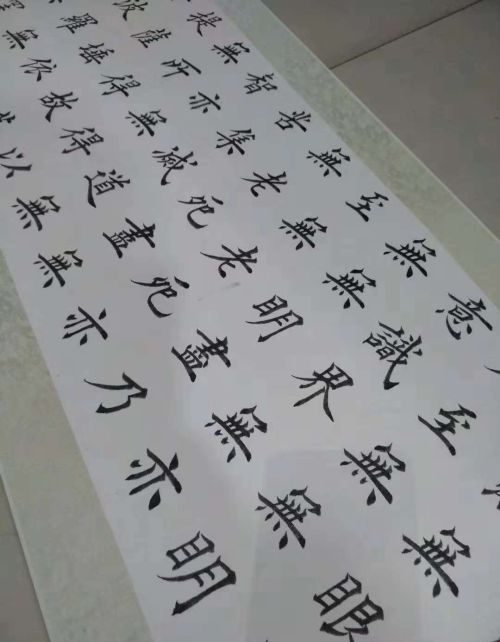 眼
無無
至無無明
意識界無亦
無無明盡乃
至無老死亦
無老死盡無
苦集滅道無
智亦無得以
無所得故
提薩埵依
故羅無